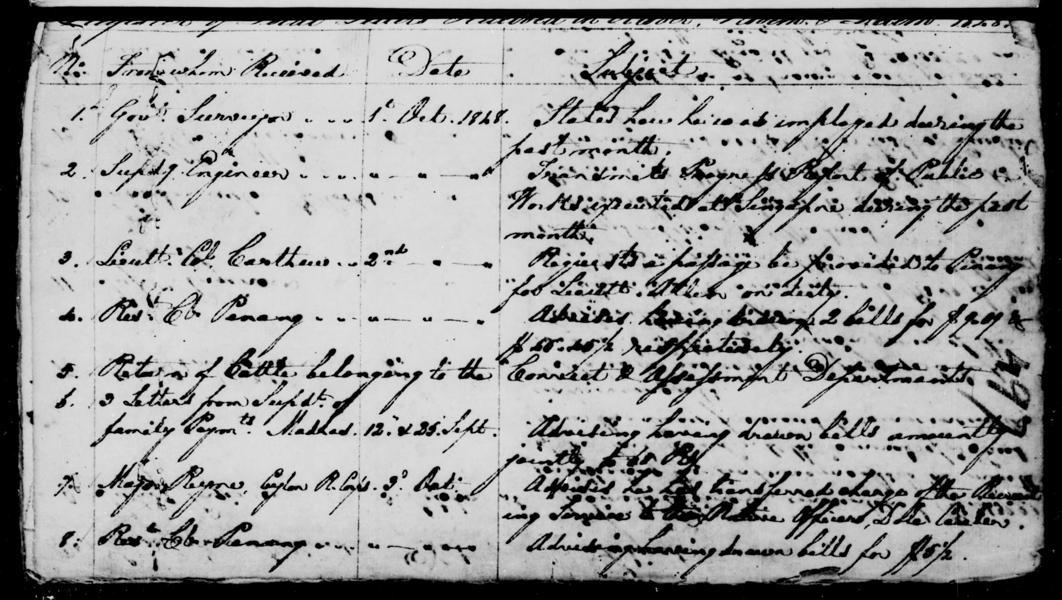 Register of Letters Received in October, 1848.
No. From whom Received Date Subject.
1. Govt. Surveyor 1st Oct. 1848. Stated how he was employed during the
past month.
2 Suptdg. Engineer " " " Transmits Progress Report of Public
Works executed at Singapore during the past
month.
3. Lieutt. Col. Carthew 2nd " " Requests a passage be provided to Penang
for Lieutt. on duty.
4. Rest. Cr. Penang " " " Advises having drawn 2 bills for
respectively
5. Return of Cattle belonging to the Convict & Assessment Departments
6. 3 Letters from Supdt. of
family Paymts. Madras. 12. & 25. Sept. Advising having drawn bills amounting
jointly to
7. Major Ceylon R. 3d Oct. Advises he has transferred charge of the
ing Service to
8. Rest. Cr. Penang " " Advising having drawn bills for